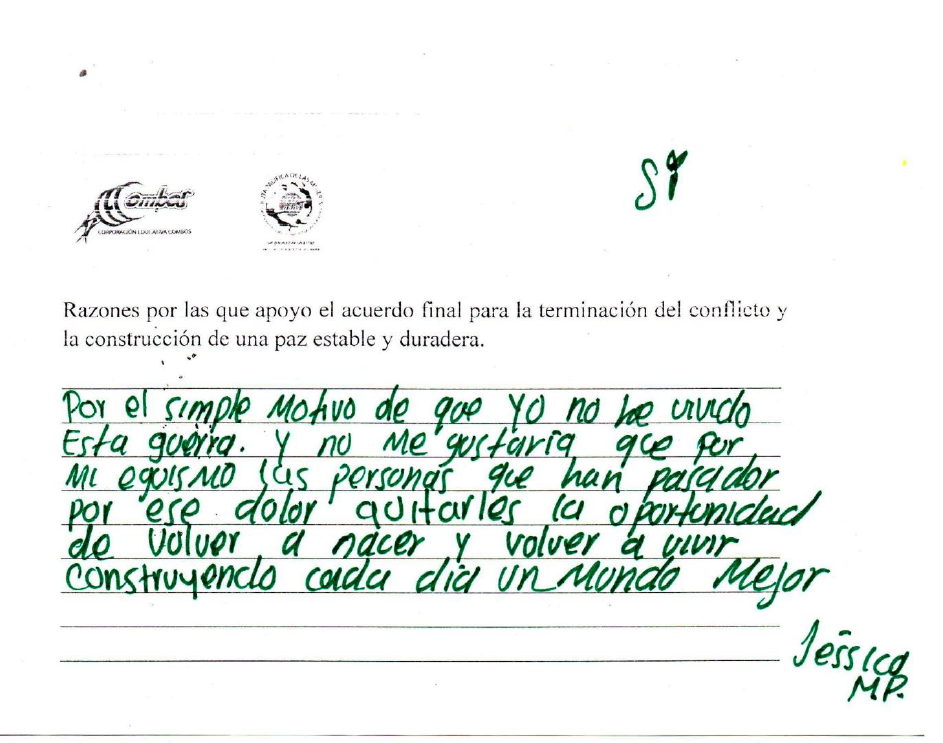 Sí
Combos
CORPORACIÓN EDUCATIVA COMBOS
Razones por las que apoyo el acuerdo final para la terminación del conflicto y
la construcción de una paz estable y duradera.
Por el simple Motivo de que Yo no he vivido
Esta guerra. y no Me gustaria que por
Mi eguismo las personas que han pasador
por ese dolor quitarles la oportunidad
de volver a nacer y volver a vivir
construyendo cada dia un Mundo Mejor
Jessica
MP.